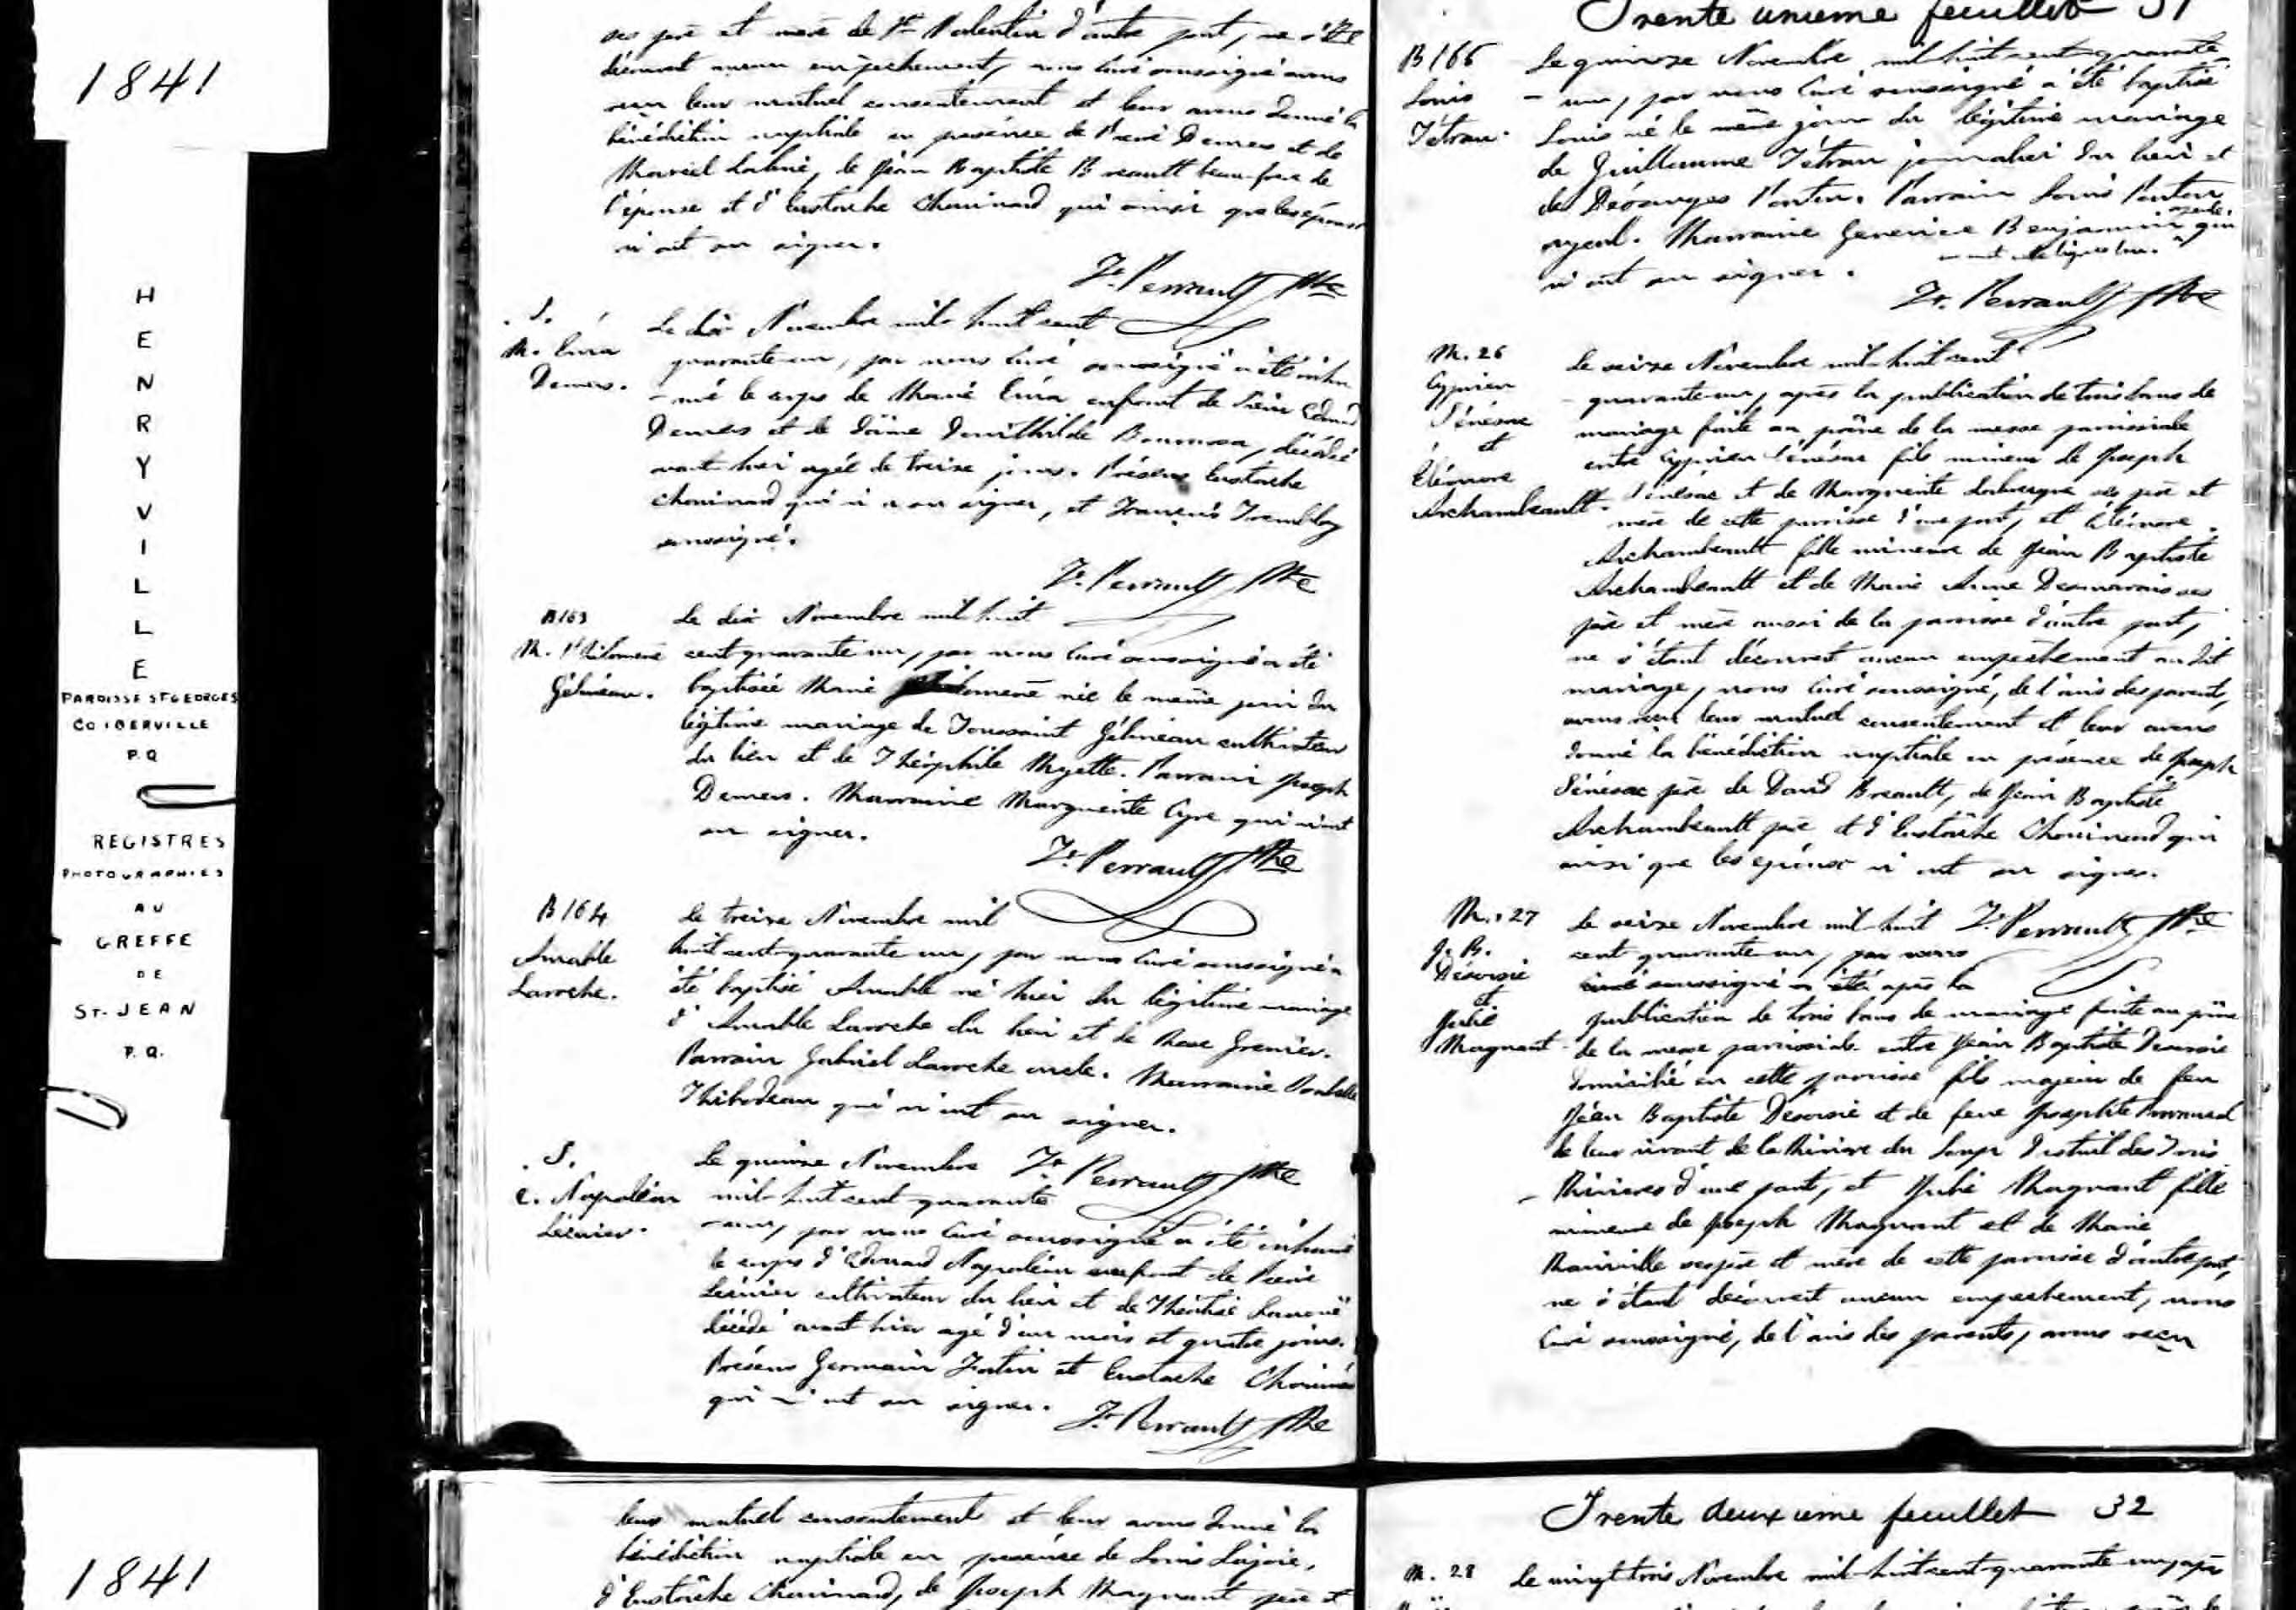 1841
HENRYVILLE
PAROISSE ST GEORGES
CO IBERVILLE
P.Q
REGISTRES
PHOTOGRAPHIES
AU
GREFFE
DE
ST-JEAN
P.Q.
1841
ses père et mère de St Valentin d'autre part, ne s'étt
découvert aucun empêchement, nous Curé soussigné avons
reçu leur mutuel consentement et leur avons donné la
bénédiction nuptiale en présence de Demers et de
de Jean Baptiste Breault beau-frère de
l'épouse et d'Eustache Chouinard qui ainsi que les époux
n'ont su signer.
Fr. Perrault Ptre
S.
M.
Demers.
Le dix Novembre mil huit cent
quarante-un, par nous Curé soussigné a été inhu
-mé le corps de Marie enfant de Sieur
Demers et de Dame décédée
avant hier agée de treize jours. Présens Eustache
Chouinard qui n'a su signer, et François Tremblay
soussigné.
Fr. Perrault Ptre
B163
M. Philomene
Gélineau.
Le dix Novembre mil huit
cent quarante un, par nous Curé soussigné a été
baptisée Marie Philomene née le même jour du
légitime mariage de Toussaint Gélineau cultivateur
du lieu et de Théophile Myette. Parrain Joseph
Demers. Marraine Marguerite Cyre qui n'ont
su signer.
Fr. Perrault Ptre
B164
Amable
Laroche.
Le treize Novembre mil
huit cent quarante un, par nous Curé soussigné a
été baptisé Amable né hier du légitime mariage
d'Amable Laroche du lieu et de Rose Grenier.
Parrain Gabriel Laroche oncle. Marraine
Thibodeau qui n'ont su signer.
Fr. Perrault Ptre
S.
E. Napoléon
Le quinze Novembre
mil huit cent quarante
-un, par nous Curé soussigné a été inhumé
le corps d'Edouard Napoléon enfant de Pierre
cultivateur du lieu et de
décédé avant hier agé d'un mois et quatre jours.
Présens Germain Fortin et Eustache Chouinard
qui n'ont su signer.
Fr. Perrault Ptre
Trente unieme feuillet 31
B166
Louis
Tétrau.
Le quinze Novembre mil huit cent quarante
-un, par nous Curé soussigné a été baptisé
Louis né le même jour du légitime mariage
de Guillaume Tétrau journalier du lieu et
de Désanges Parrain Louis
ayeul. Marraine Benjamin qui
n'ont su signer.
Fr. Perrault Ptre
M. 26
Cyprien
Sénésac
et
Eléonore
Archambeault.
Le seize Novembre mil huit cent
-quarante-un, après la publication de trois bans de
mariage faite au prône de la messe paroissiale
entre Cyprien Sénésac fils mineur de Joseph
Sénésac et de Marguerite ses père et
mère de cette paroisse d'une part, et Eléonore
Archambeault fille mineure de Jean Baptiste
Archambeault et de Marie Anne Desmarais ses
père et mère aussi de la paroisse d'autre part,
ne s'étant découvert aucun empêchement au dit
mariage, nous Curé soussigné, de l'avis des parents,
avons reçu leur mutuel consentement et leur avons
donné la bénédiction nuptiale en présence de Joseph
Sénésac père de David Breault, de Jean Baptiste
Archambeault père et d'Eustache Chouinard qui
ainsi que les époux n'ont su signer.
Fr. Perrault Ptre
M. 27
J. B.
et
Julie
Magnant
Le seize Novembre mil huit
cent quarante-un, par nous
curé soussigné a été après la
publication de trois bans de mariage faite au prône
de la messe paroissiale entre Jean Baptiste
domicilié en cette paroisse fils majeur de feu
Jean Baptiste et de feue Josephte
de leur vivant de la Rivière du Loup District des Trois
Rivières d'une part, et Julie Magnant fille
mineure de Joseph Magnant et de Marie
Mainville ses père et mère de cette paroisse d'autre part,
ne s'étant découvert aucun empêchement, nous
Curé soussigné, de l'avis des parents, avons reçu
leur mutuel consentement et leur avons donné la
bénédiction nuptiale en présence de Louis Lajoie,
d'Eustache Chouinard, de Joseph Magnant père et
Trente deuxieme feuillet 32
M. 28
Le vingt trois Novembre mil huit cent quarante un, après